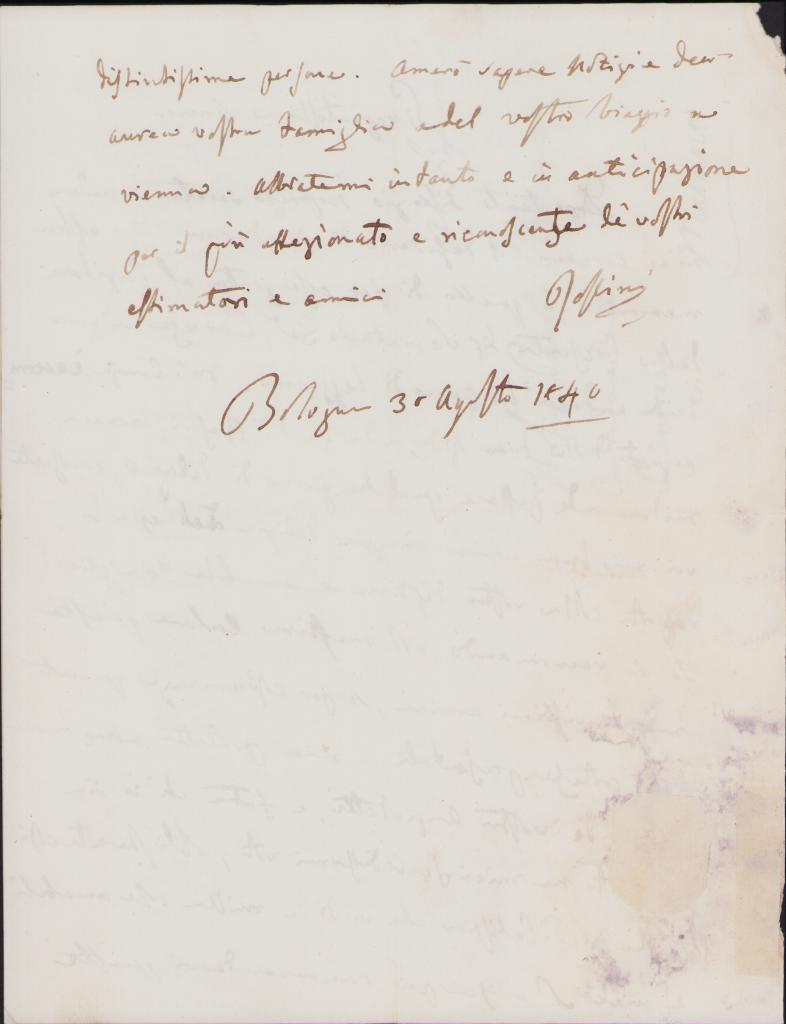 distintissime persone. Amerò sapere Notizie della
aurea vostra Famiglia e del vostro Viaggio a
vienna. Abbiatemi intanto e in anticipazione
per il più affezionato e riconoscente de vostri
estimatori e amici Rossini
Bologna 30 Agosto 1840